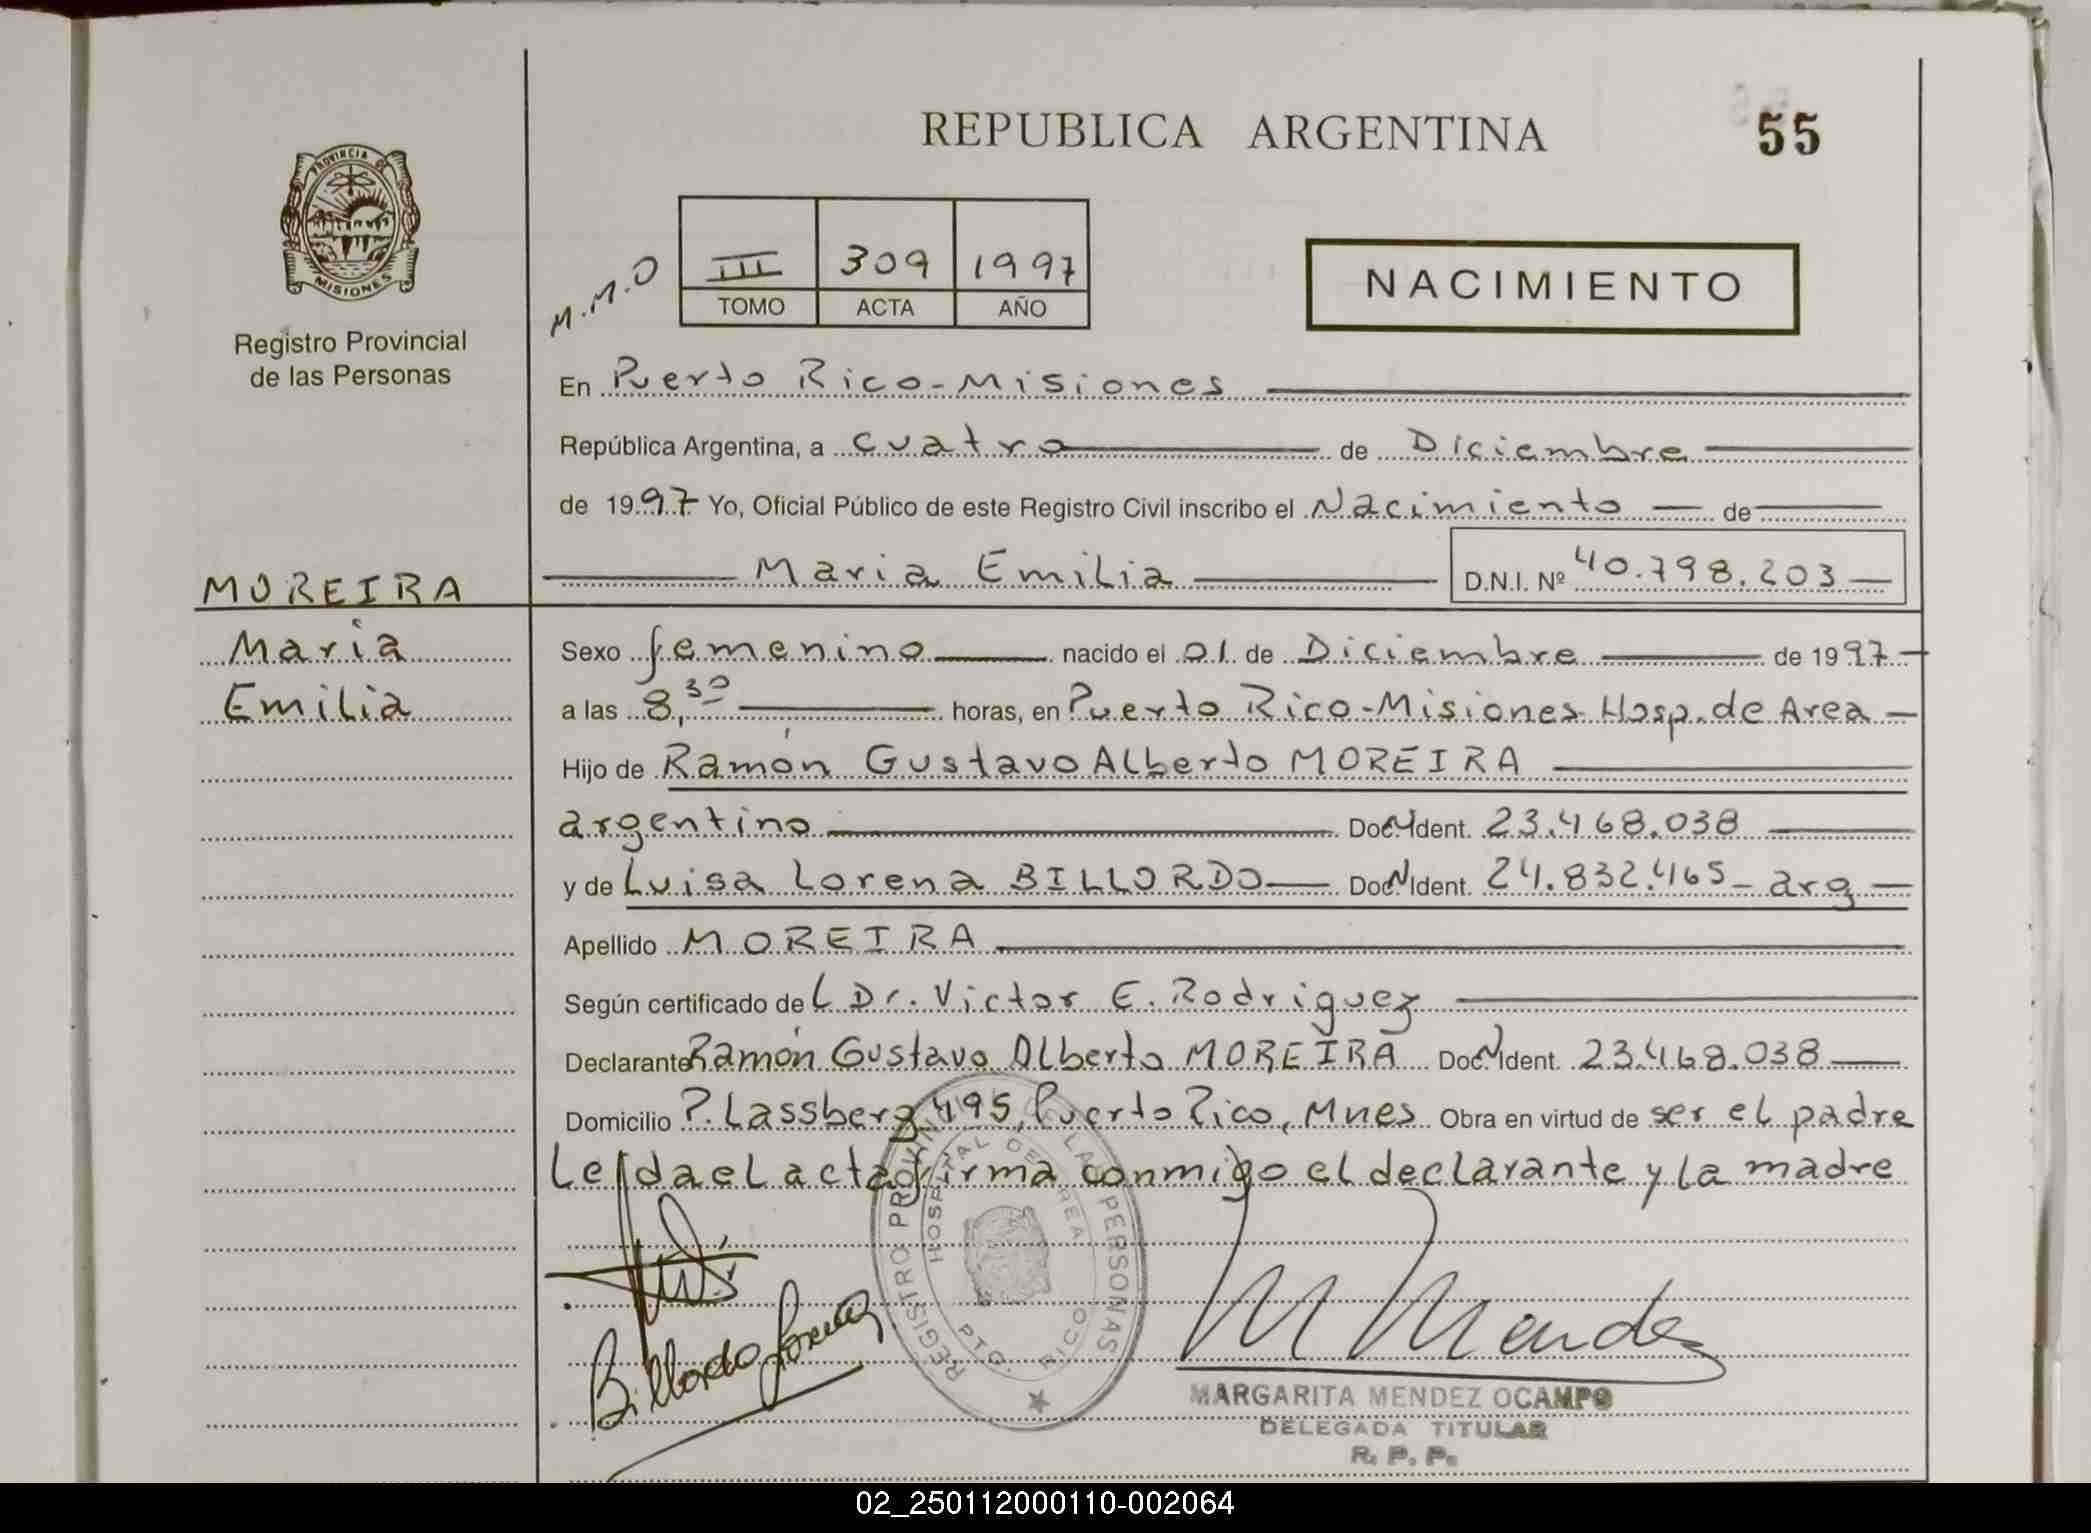 REPUBLICA ARGENTINA
55
PROVINCIA DE
MISIONES
Registro Provincial
de las Personas
M.M.O
III 309 1997
TOMO ACTA AÑO
NACIMIENTO
En Puerto Rico-Misiones
República Argentina, a cuatro de Diciembre
de 1997 Yo, Oficial Público de este Registro Civil inscribo el Nacimiento de
Maria Emilia D.N.I. Nº 40.798.203
MOREIRA
Maria
Emilia
Sexo femenino nacido el 01 de Diciembre de 1997
a las 8,30 horas, en Puerto Rico-Misiones Hosp. de Area
Hijo de Ramón Gustavo Alberto MOREIRA
argentino Doc N Ident. 23.468.038
y de Luisa Lorena BILLORDO Doc N Ident. 24.832.465 - arg
Apellido MOREIRA
Según certificado del Dr. Victor E. Rodriguez
Declarante Ramón Gustavo Alberto MOREIRA Doc N Ident. 23.468.038
Domicilio P. Lassberg 495, Puerto Rico, Mnes Obra en virtud de ser el padre
Leida el acta firma conmigo el declarante y la madre
REGISTRO PROVINCIAL DE LAS PERSONAS
HOSPITAL DE AREA
PTO. RICO
Billordo Lorena
M Mendez
MARGARITA MENDEZ OCAMPO
DELEGADA TITULAR
R. P. P.
02_250112000110-002064